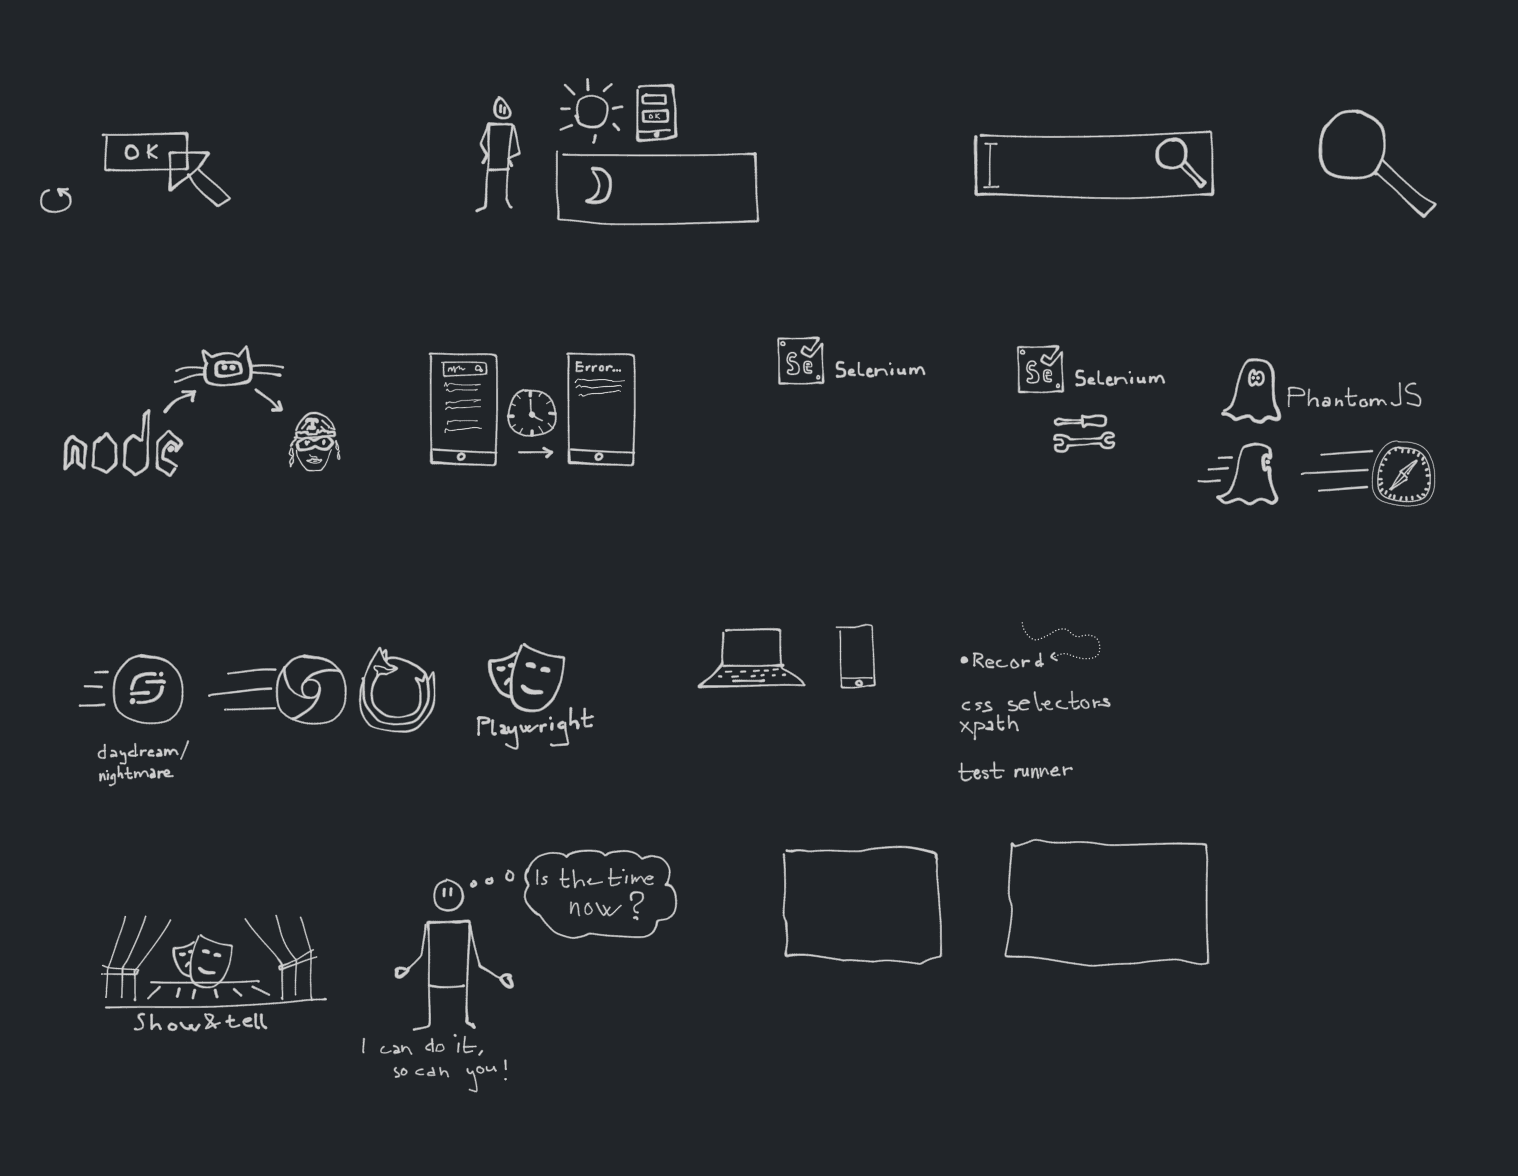 OK
OK
Error...
Se
Selenium
Se
Selenium
PhantomJS
node
T
Playwright
daydream/
nightmare
•Record
css selectors
xpath
test runner
Is the time
now?
Show&tell
I can do it,
so can you!